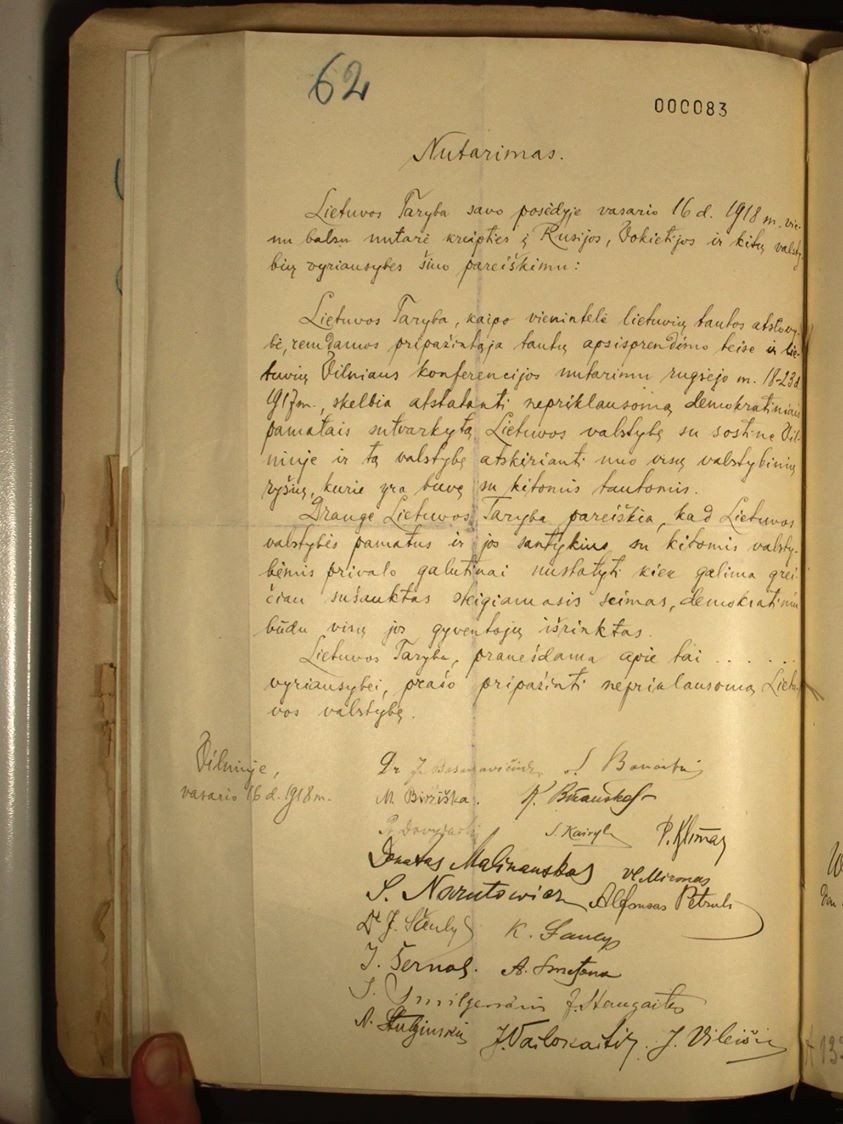 62
000083
Nutarimas.
Lietuvos Taryba savo posėdyje vasario 16 d. 1918 m. vie-
nu balsu nutarė kreipties į Rusijos, Vokietijos ir kitų valsty-
bių vyriausybes šiuo pareiškimu:
Lietuvos Taryba, kaipo vienintelė lietuvių tautos atstovy-
bė, remdamos pripažintąja tautų apsisprendimo teise ir lie-
tuvių Vilniaus konferencijos nutarimu rugsėjo m. 18-23 d.
1917 m., skelbia atstatanti nepriklausomą, demokratiniais
pamatais sutvarkytą Lietuvos valstybę su sostine Vil-
niuje ir tą valstybę atskirianti nuo visų valstybinių
ryšių, kurie yra buvę su kitomis tautomis.
Drauge Lietuvos Taryba pareiškia, kad Lietuvos
valstybės pamatus ir jos santykius su kitomis valsty-
bėmis privalo galutinai nustatyti kiek galima grei-
čiau sušauktas steigiamasis seimas, demokratiniu
būdu visų jos gyventojų išrinktas.
Lietuvos Taryba, pranešdama apie tai . . . . . .
vyriausybei, prašo pripažinti nepriklausomą Lietu-
vos valstybę.
Vilniuje,
vasario 16 d. 1918 m.
Dr J. Basanavičius S. Banaitis
M Biržiška. K. Bizauskas
P. Dovydaitis S. Kairys P. Klimas
Donatas Malinauskas Vl. Mironas
S. Narutowicz Alfonsas Petrulis
Dr J. Šaulys K. Šaulys
J. Šernas. A. Smetona
J. Smilgevičius J. Staugaitis
A. Stulginskis J. Vailokaitis. J. Vileišis